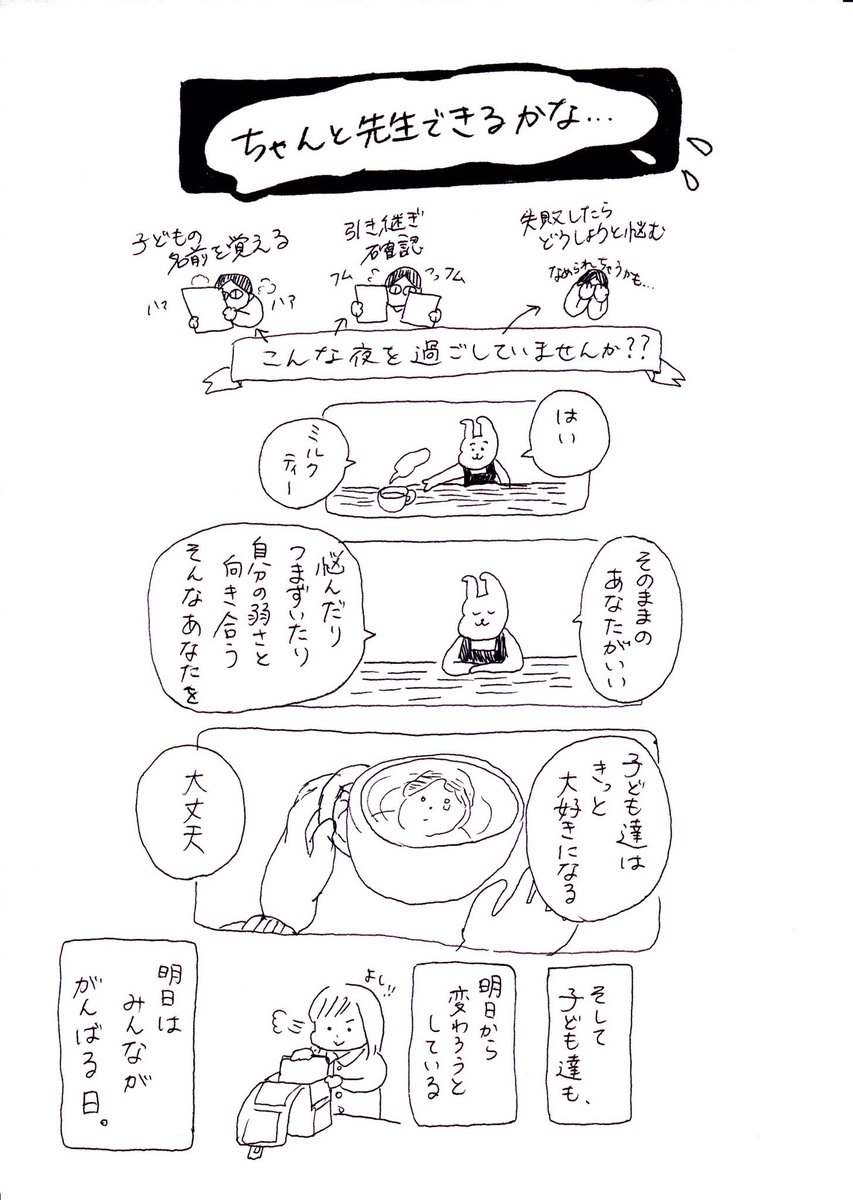 ちゃんと先生できるかな…
子どもの
名前を覚える
ハァ
ハァ
引き継ぎ
確認
フム
フムフム
失敗したら
どうしようと悩む
なめられちゃうかも…
こんな夜を過ごしていませんか??
はい
ミルク
ティー
そのままの
あなたがいい
悩んだり
つまずいたり
自分の弱さと
向き合う
そんなあなたを
子ども達は
きっと
大好きになる
大丈夫
そして
子ども達も、
明日から
変わろうと
している
よし!!
明日は
みんなが
がんばる日。